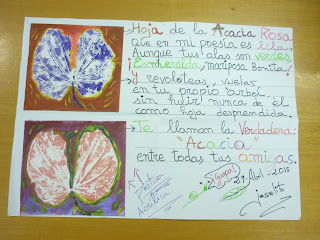 Hoja de la Acacia Rosa
que en mi poesía es lila.
Aunque tus alas son verdes
¡Esmeralda, mariposa Bonita!
y revoloteas, vuelas
en tu propio árbol
sin huir nunca de él
como hoja desprendida.
Te llaman la Verdadera:
"Acacia"
entre todas tus amigas.
29-Abril-2015
joselito